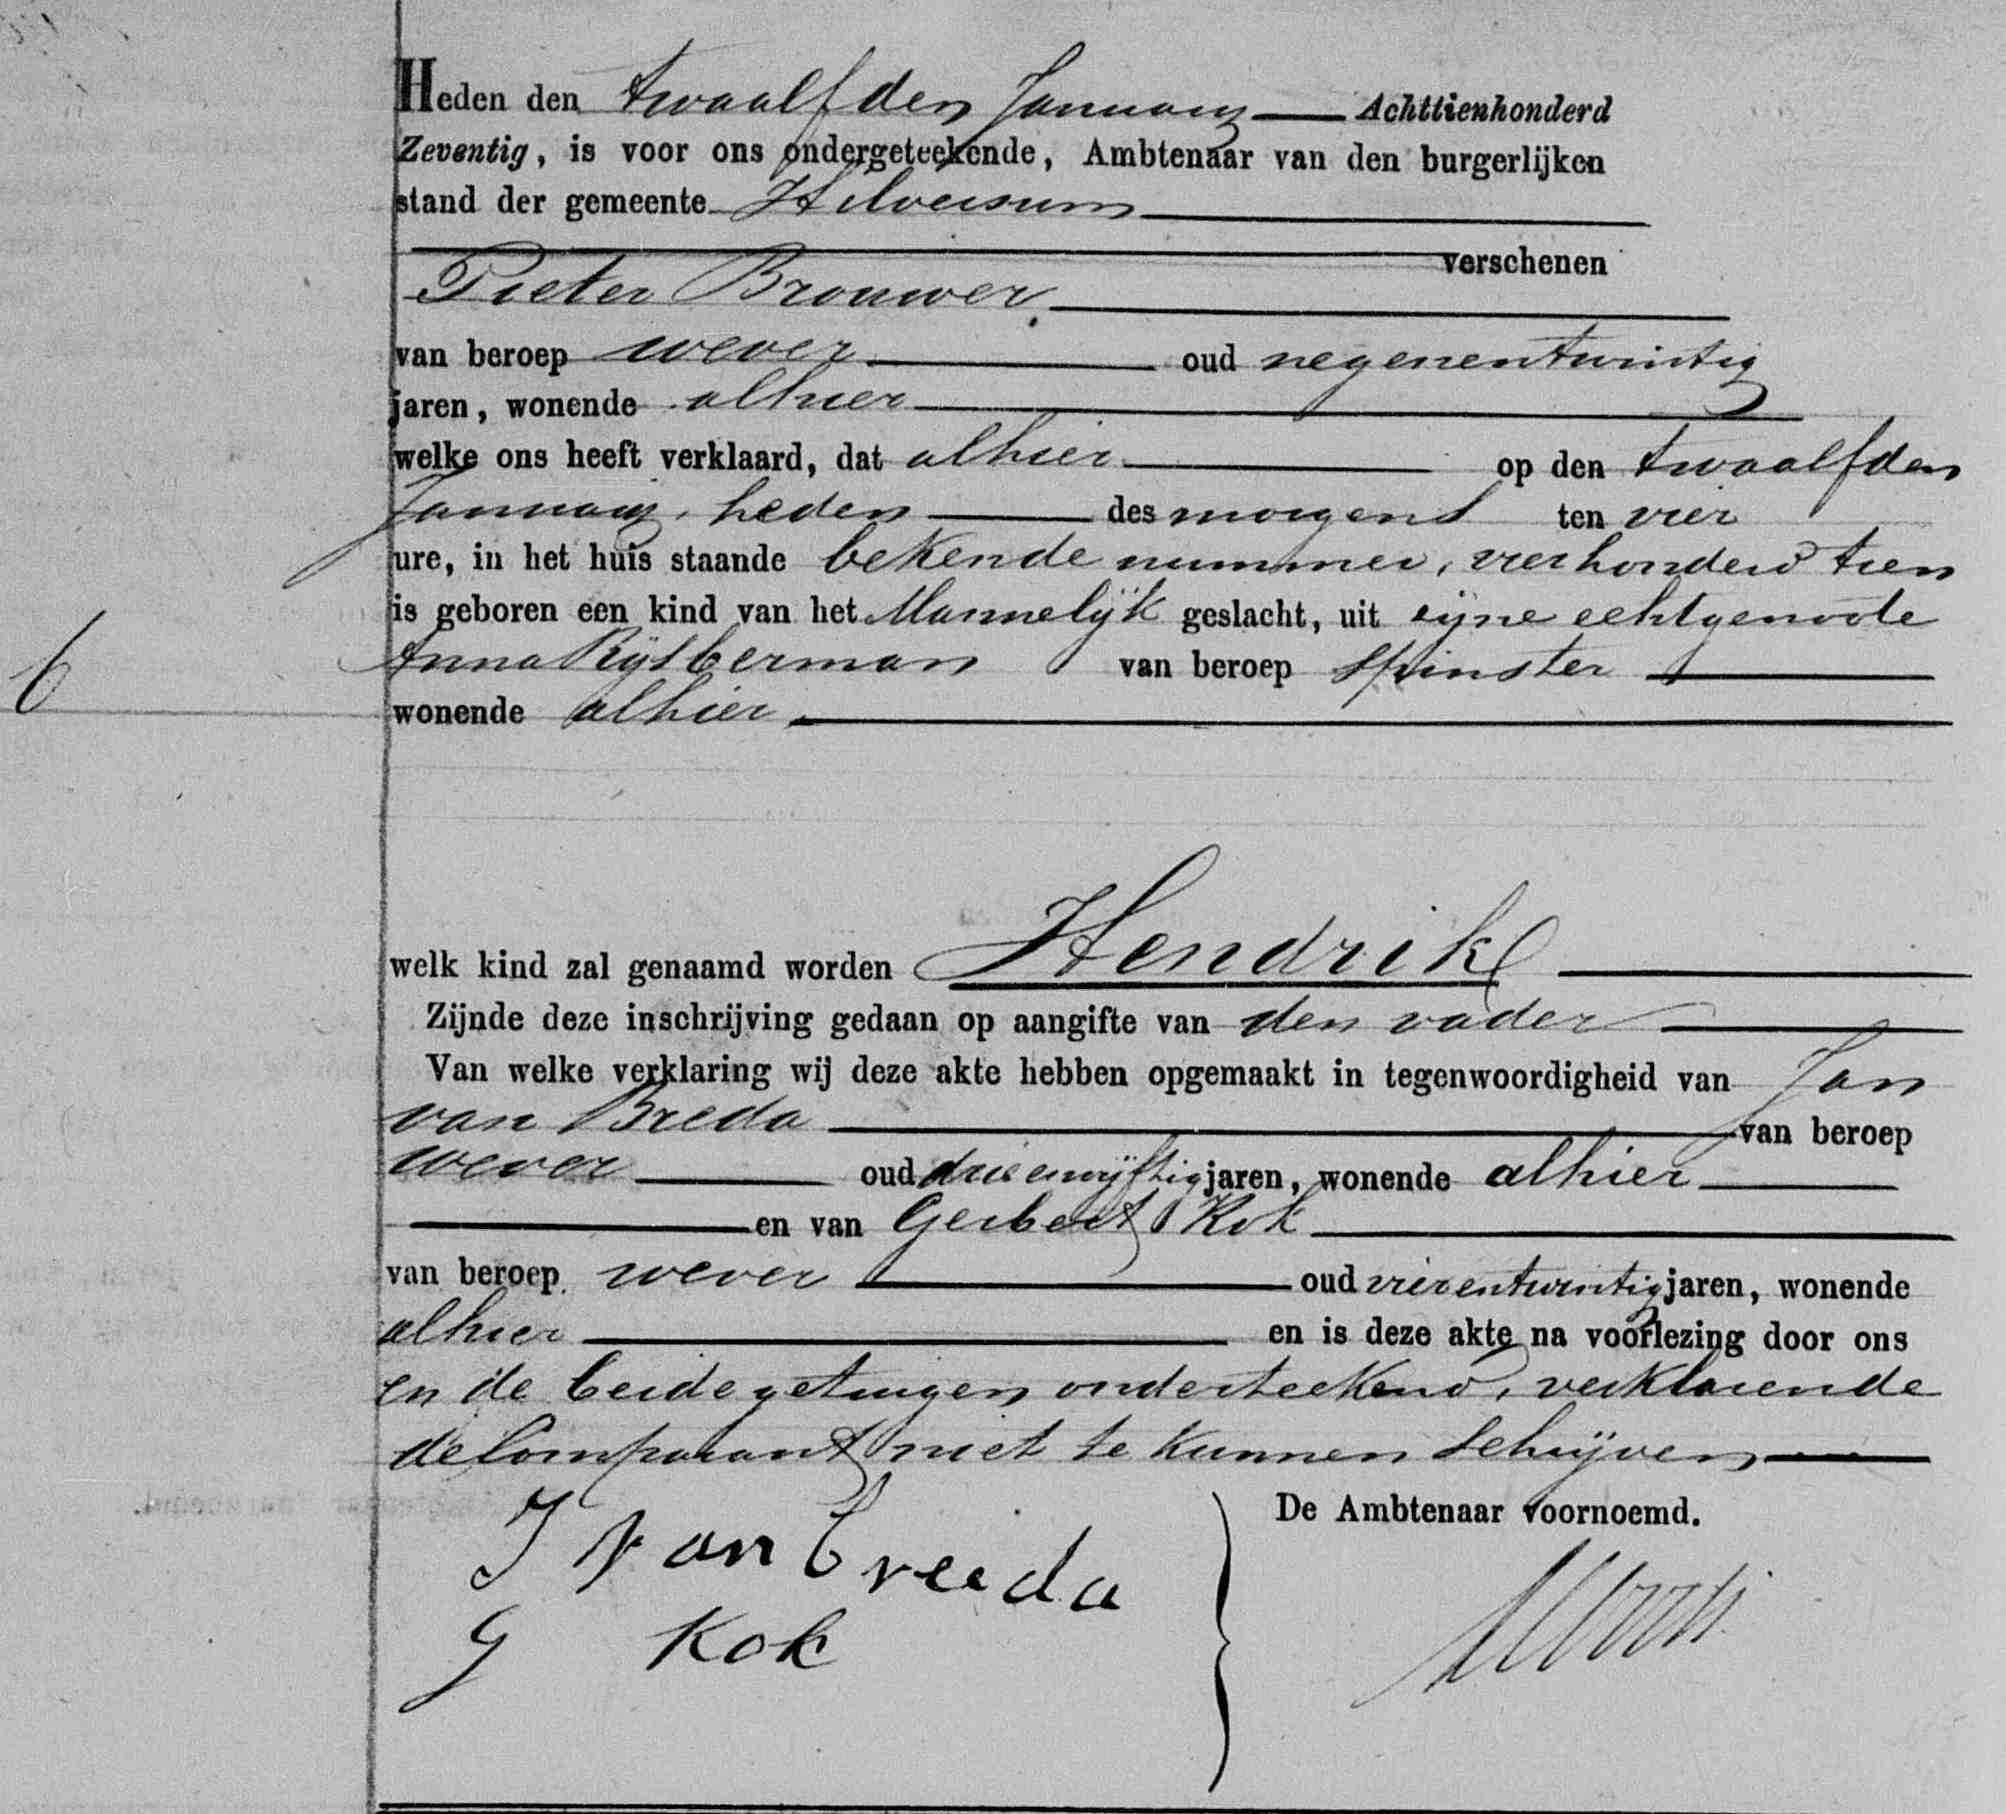 Heden den twaalfden Januarij Achttienhonderd
Zeventig, is voor ons ondergeteekende, Ambtenaar van den burgerlijken
stand der gemeente Hilversum
verschenen
Pieter Brouwer
van beroep wever oud negenentwintig
jaren, wonende alhier
welke ons heeft verklaard, dat alhier op den twaalfden
Januarij, heden des morgens ten vier
ure, in het huis staande bekende nummer, vierhonderd tien
6
is geboren een kind van het Mannelijk geslacht, uit zijne echtgenoote
Anna Rijsberman van beroep Spinster
wonende alhier
welk kind zal genaamd worden Hendrik
Zijnde deze inschrijving gedaan op aangifte van den vader
Van welke verklaring wij deze akte hebben opgemaakt in tegenwoordigheid van Jan
van Breda van beroep
wever oud drieenvijftig jaren, wonende alhier
en van Gerbert Kok
van beroep wever oud vierentwintig jaren, wonende
alhier en is deze akte na voorlezing door ons
en de beide getuigen onderteekend, verklarende
de Comparant niet te kunnen schrijven
De Ambtenaar voornoemd.
J van breeda
G Kok